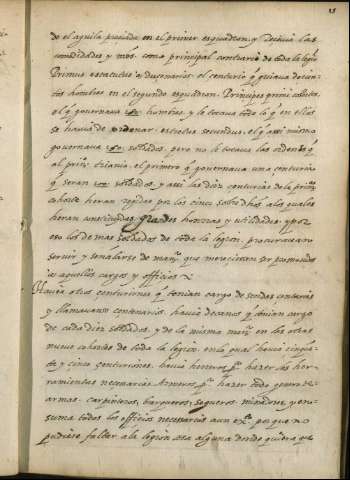 15
de el aguila puesta en el primer esquadron, y tenia las
comodidades y mas. como principal centurio de toda la legiō
Primus estatutus o ducenarius. el centurio q̄ guiava docien
tos hombres en el segundo esquadron. Principes primi
el q̄ governava hombres. y le tocava todo lo q̄ en ellos
se havia de ordenar. estatus secundus. el q̄ assi mismo
governava soldados. pero no le tocava las ordenes q̄
al prim̄. triario. el primero q̄ governava una centuria
q̄ seran soldados, y assi las diez centurias de la prim̄
cohorte heran regidas por los cinco sobre dhos. a los quales
heran constituidas grandes honrras y utilidades. y por
eso los de mas soldados de toda la legion. procuravan
servir y señalarse de man̄. que mereciessen ser promovidos
a aquellos cargos y officios
Havia otros centuriones q̄ tenian cargo de sendas centurias
y llamavanse centenarios. havia decanos q̄ tenian cargo
de cada diez soldados. y de la misma man̄ en las otras
nueve cohortes de toda la legion. en la qual havia cinquē
ta y cinco centuriones. havia herreros p̄. hazer las her
ramientas necessarias. Armeros p̄. hazer todo genero de
armas. carpinteros, barqueros, sogueros minadores, y en
suma todos los officios necessarios aun ex̄. por que no
pudiese faltar a la legion cosa alguna donde quiera que